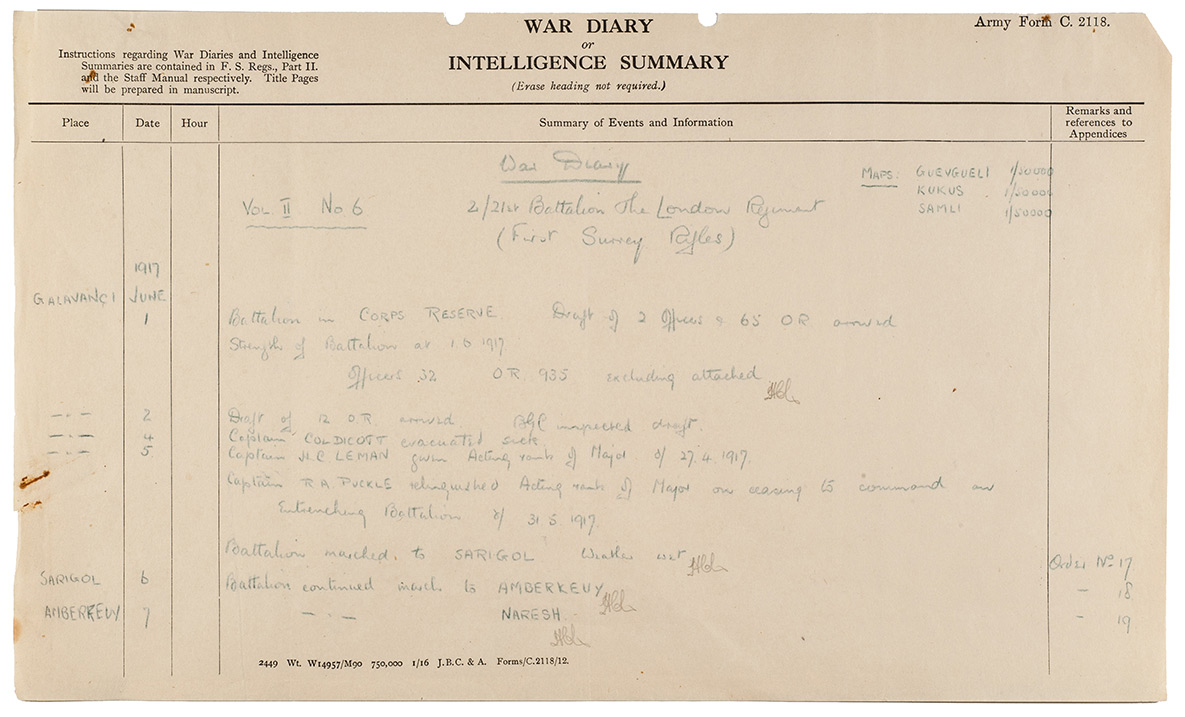 WAR DIARY
or
INTELLIGENCE SUMMARY
(Erase heading not required.)
Army Form C. 2118.
Instructions regarding War Diaries and Intelligence
Summaries are contained in F. S. Regs., Part II.
and the Staff Manual respectively. Title Pages
will be prepared in manuscript.
Place Date Hour Summary of Events and Information Remarks and references to Appendices
War Diary
MAPS: GUEVGUELI 1/50000
KUKUS 1/50000
SAMLI 1/50000
VOL II No 6 2/21st Battalion The London Regiment
(First Surrey Rifles)
1917
GALAVANÇI JUNE
1 Battalion in CORPS RESERVE. Draft of 2 officers & 65 OR arrived
Strength of Battalion at 1.6.1917
Officers 32 OR. 935 excluding attached
-.- 2 Draft of 12 O.R. arrived. BGC inspected draft.
-.- 4 Captain COLDICOTT evacuated sick.
-.- 5. Captain H.C LEMAN given Acting rank of Major d/ 27.4.1917.
Captain R.A. PUCKLE relinquished Acting rank of Major on ceasing to command an
Entrenching Battalion d/ 31.5.1917.
Battalion marched to SARIGOL Weather wet Order No 17
SARIGOL 6 Battalion continued march to AMBERKEUY - 18
AMBERKEUY 7 -.- NARESH - 19
2449 Wt. W14957/M90 750,000 1/16 J.B.C. & A. Forms/C.2118/12.